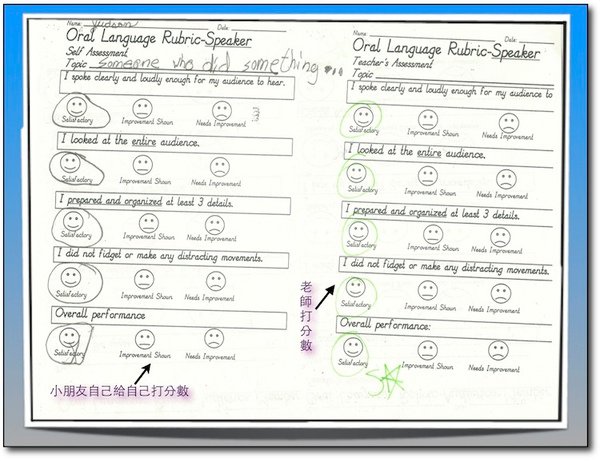 Name: Judson Date:
Oral Language Rubric-Speaker
Self Assessment
Topic Someone who did something...
I spoke clearly and loudly enough for my audience to hear.
Satisfactory Improvement Shown Needs Improvement
I looked at the entire audience.
Satisfactory Improvement Shown Needs Improvement
I prepared and organized at least 3 details.
Satisfactory Improvement Shown Needs Improvement
I did not fidget or make any distracting movements.
Satisfactory Improvement Shown Needs Improvement
Overall performance
Satisfactory Improvement Shown Needs Improvement
小朋友自己給自己打分數
Name: Date:
Oral Language Rubric-Speaker
Teacher's Assessment
Topic
I spoke clearly and loudly enough for my audience to
Satisfactory Improvement Shown Needs Improvement
I looked at the entire audience.
Satisfactory Improvement Shown Needs Improvement
I prepared and organized at least 3 details.
Satisfactory Improvement Shown Needs Improvement
I did not fidget or make any distracting movements.
Satisfactory Improvement Shown Needs Improvement
Overall performance:
Satisfactory Improvement Shown Needs Improvement
老師打分數